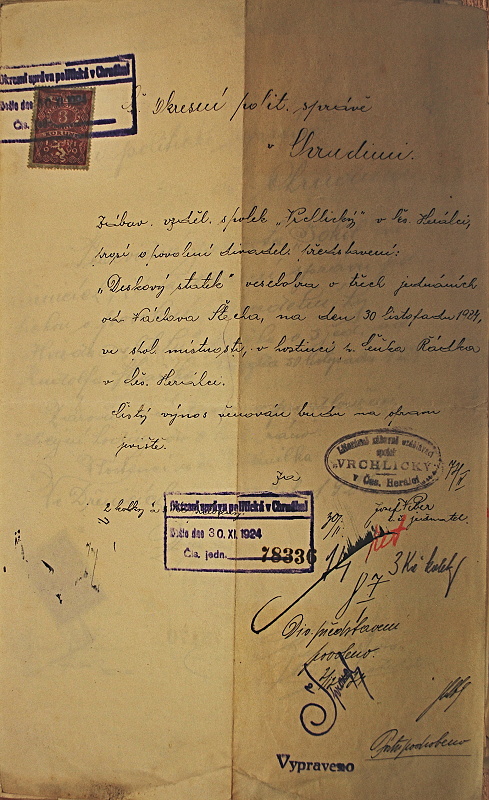 Okresní správa politická v Chrudimi
Došlo dne
Čís.
3
KORUNY
Okresní polit. správě
v Chrudimi.
Zábav. vzděl. spolek „Vrchlický" v Čes. Heralci,
prosí o povolení divadel. představení:
„Deskový statek" veselohra o třech jednáních
od Václava Štecha, na den 30 listopadu 1924,
ve skol. místnosti, v hostinci p. Čeňka Rádka
v Čes. Heralci.
Čistý výnos věnován bude na opravu
jeviště.
Literární zábavně vzdělávací
spolek
„VRCHLICKÝ"
v Čes. Heralci
Za
2 kolky
Josef Viber
t. č. jednatel.
Okresní správa politická v Chrudimi
Došlo dne 30. XI. 1924
Čís. jedn. 78336
3 Kč kolek
Div. představení
povoleno.
Vypraveno